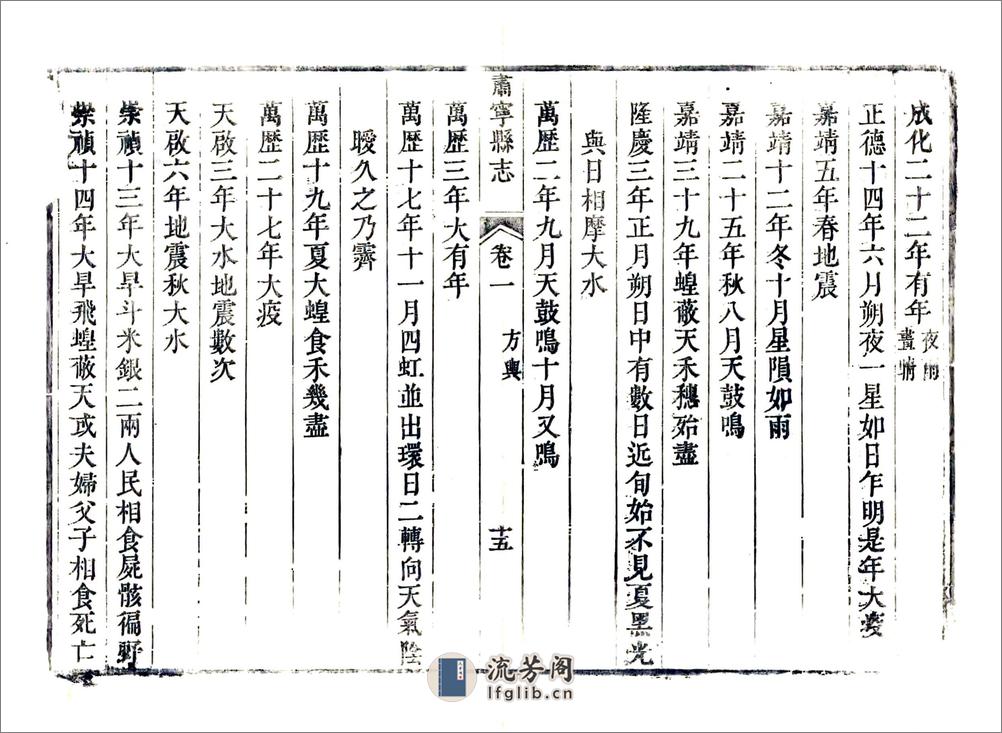 成化二十二年有年夜雨晝晴
正德十四年六月朔夜一星如日乍明是年大疫
嘉靖五年春地震
嘉靖十二年冬十月星隕如雨
嘉靖二十五年秋八月天鼓鳴
嘉靖三十九年蝗蔽天禾穗殆盡
隆慶三年正月朔日中有數日近旬始不見夏黑光
與日相摩大水
萬歷二年九月天鼓鳴十月又鳴
肅寧縣志
卷一
方輿
十五
萬歷三年大有年
萬歷十七年十一月四虹並出環日二轉向天氣陰
曖久之乃霽
萬歷十九年夏大蝗食禾幾盡
萬歷二十七年大疫
天啟三年大水地震數次
天啟六年地震秋大水
崇禎十三年大旱斗米銀二兩人民相食屍骸徧野
崇禎十四年大旱飛蝗蔽天或夫婦父子相食死亡
流芳阁
lfglib.cn